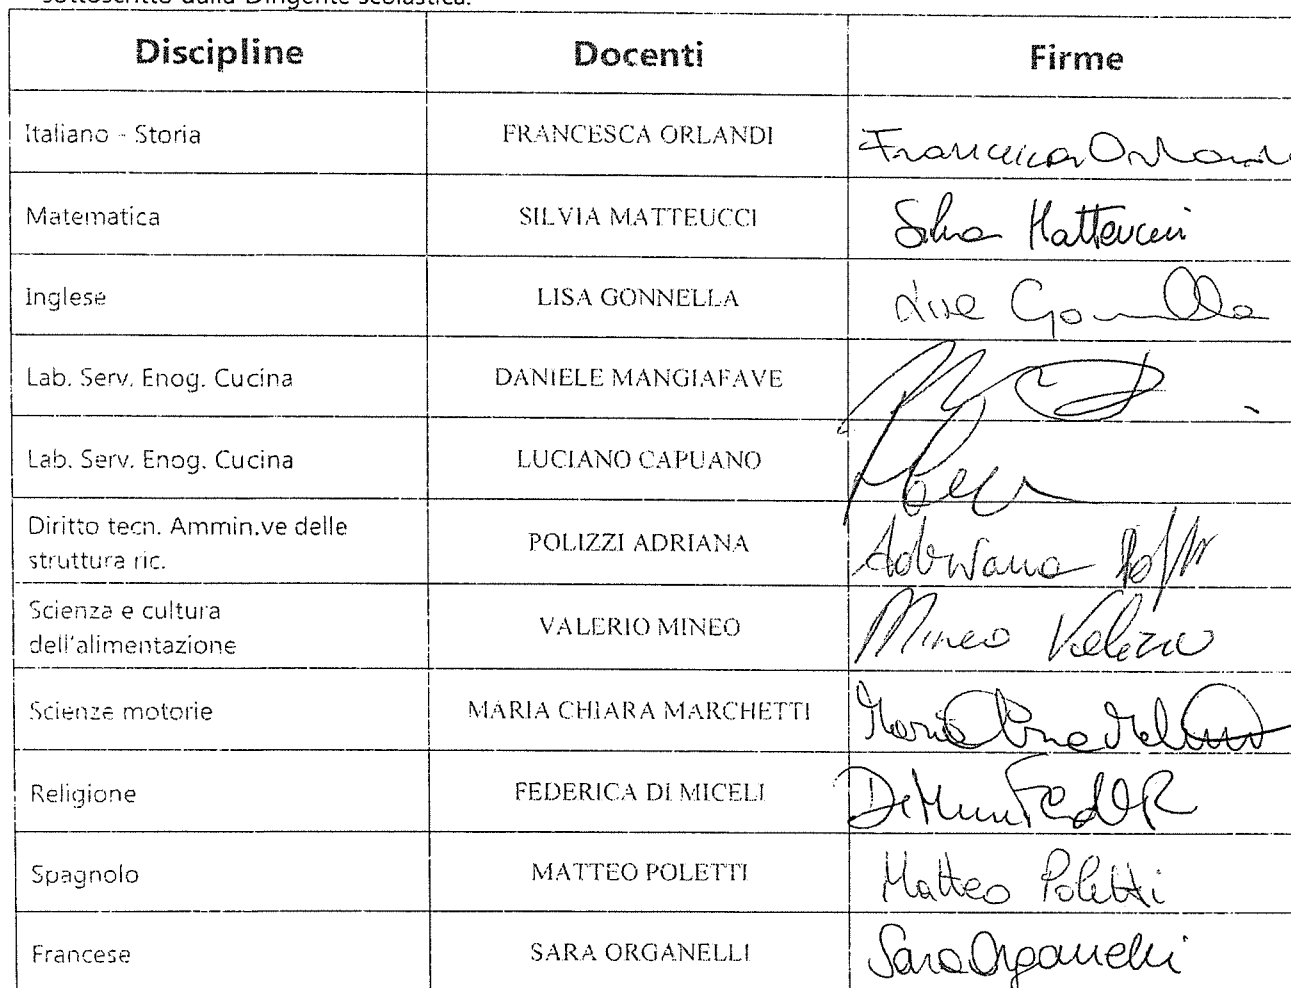 sottoscritto dalla Dirigente scolastica.
Discipline Docenti Firme
Italiano - Storia FRANCESCA ORLANDI Francesca Orlandi
Matematica SILVIA MATTEUCCI Silvia Matteucci
Inglese LISA GONNELLA Lisa Gonnella
Lab. Serv. Enog. Cucina DANIELE MANGIAFAVE
Lab. Serv. Enog. Cucina LUCIANO CAPUANO
Diritto tecn. Ammin.ve delle
struttura ric. POLIZZI ADRIANA Adriana
Scienza e cultura
dell'alimentazione VALERIO MINEO Mineo Valerio
Scienze motorie MARIA CHIARA MARCHETTI Maria
Religione FEDERICA DI MICELI
Spagnolo MATTEO POLETTI Matteo Poletti
Francese SARA ORGANELLI Sara Organelli